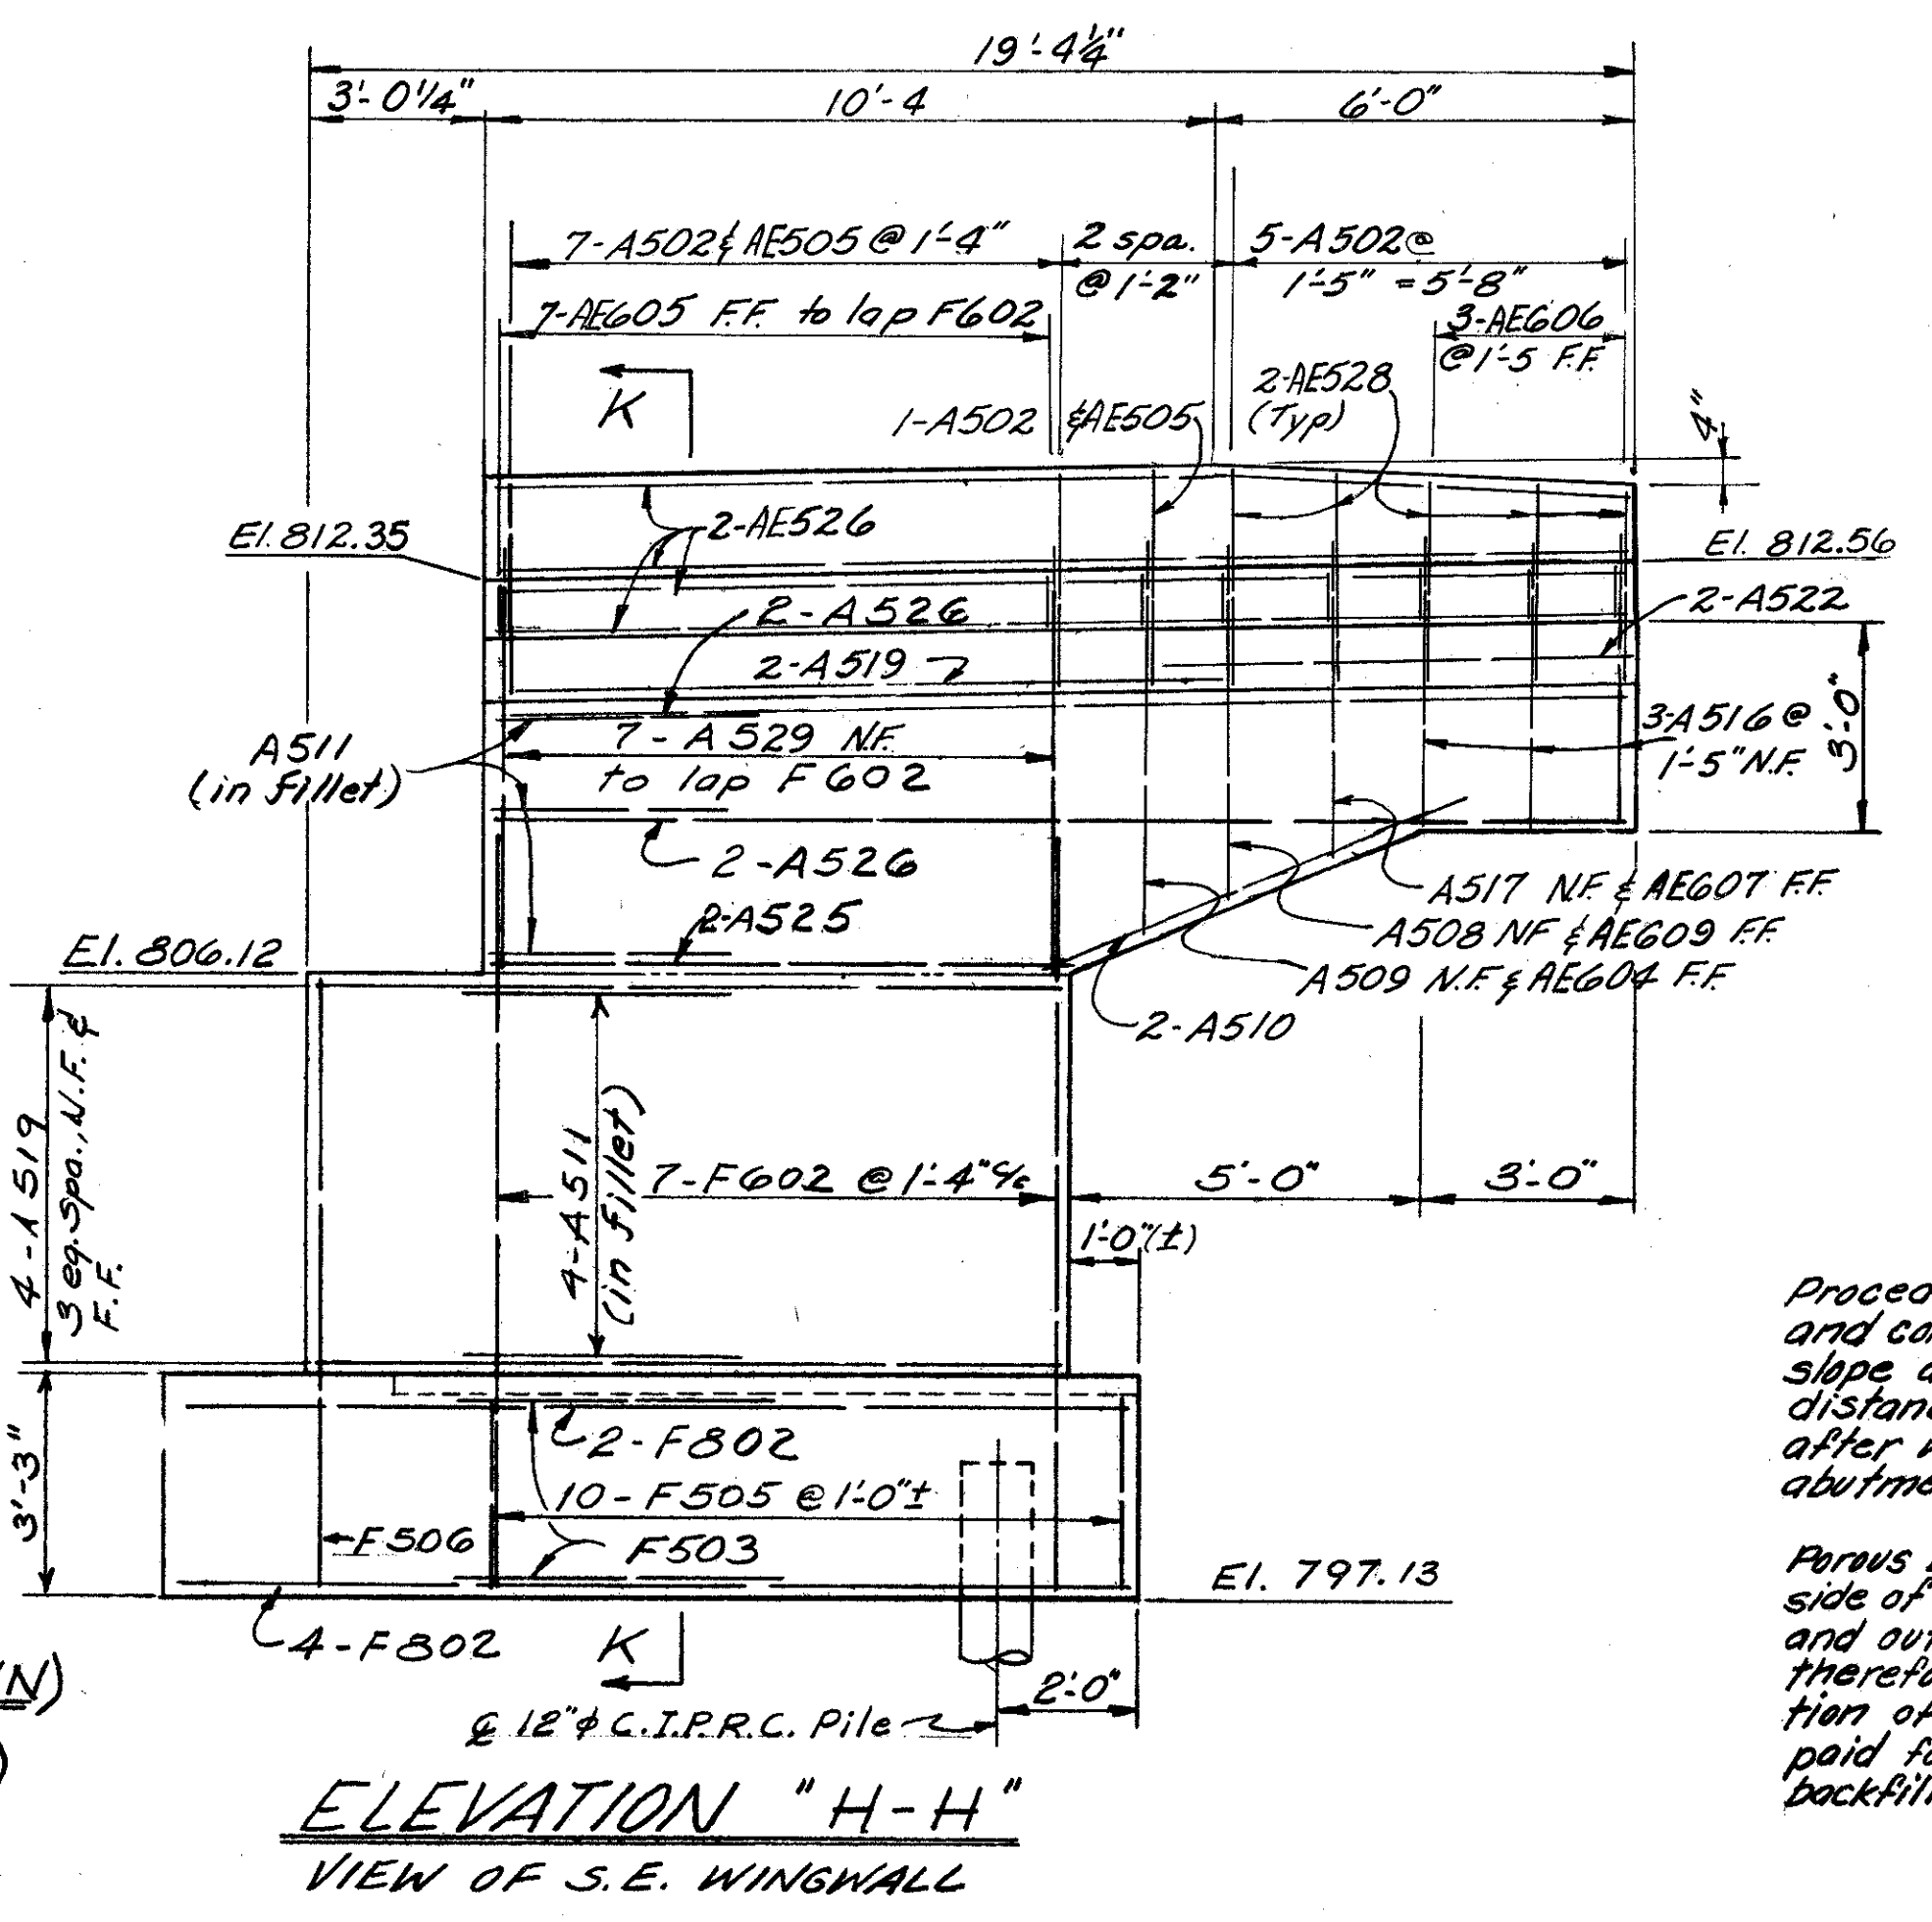 19'-4¼"
3'-0¼"
10'-4
6'-0"
7-A502 & AE505 @ 1'-4"
2 spa.
@ 1'-2"
5-A502 @
1'-5" = 5'-8"
7-AE605 F.F. to lap F602
3-AE606
@ 1'-5 F.F.
K
1-A502 & AE505
2-AE528
(Typ)
4"
El. 812.35
2-AE526
El. 812.56
2-A526
2-A522
2-A519
A511
(in fillet)
7-A529 N.F.
to lap F602
3-A516 @
1'-5" N.F.
3'-0"
2-A526
2-A525
A517 N.F. & AE607 F.F.
A508 NF & AE609 F.F.
A509 N.F. & AE604 F.F.
2-A510
El. 806.12
4-A519
3 eq. spa., N.F. &
F.F.
4-A511
(in fillet)
7-F602 @ 1'-4" c/c
5'-0"
3'-0"
1'-0"(±)
3'-3"
2-F802
10-F505 @ 1'-0"±
F506
F503
El. 797.13
4-F802
K
2'-0"
℄ 12"φ C.I.P.R.C. Pile
N)
)
ELEVATION "H-H"
VIEW OF S.E. WINGWALL
and
slope
after
abutme
Porous
side of
and out
therefo
tion of
paid fo
backfil